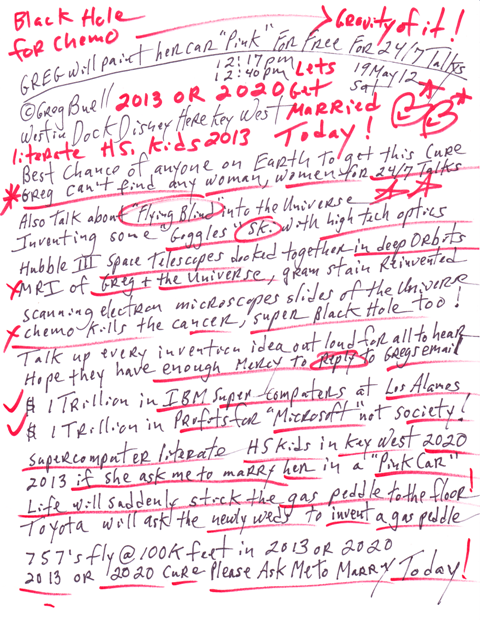 Black Hole
for Chemo
Gravity of it!
GREG will paint her car "Pink" For Free For 24/7 Talks
12:17pm
12:40pm Lets
19 May 12
Sat
©Greg Buell 2013 OR 2020 Get
Westin Dock Disney Here Key West Married
literate HS. Kids 2013 Today!
Best Chance of anyone on Earth to get this Cure
* Greg can't find any woman, women for 24/7 Talks
Also Talk about "Flying Blind" into the Universe
Inventing some "Goggles" Sk. with high tech optics
Hubble III Space Telescopes docked together in deep Orbots
x MRI of Greg + the Universe, gram stain Reinvented
scanning electron microscopes slides of the Universe
x chemo kills the cancer, super Black Hole too!
Talk up every invention idea out loud for all to hear
Hope they have enough Mercy to Reply to Gregs email
$ 1 Trillion in IBM Super computers at Los Alamos
$ 1 Trillion in Profots for "Microsoft" not society!
Supercomputer literate HS Kids in Key West 2020
2013 if she ask me to marry her in a "Pink Car"
Life will suddenly stick the gas peddle to the floor!
Toyota will ask the newly weds to invent a gas peddle
757's fly @ 100K feet in 2013 OR 2020
2013 OR 2020 Cure Please Ask Me to Marry Today!